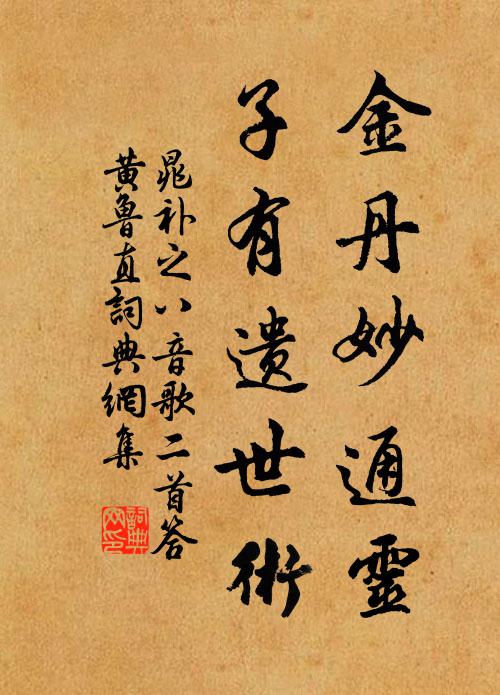 金丹妙通靈
子有遺世術
晁补之八音歌二首答
黃魯直詞典網集
詞典网印